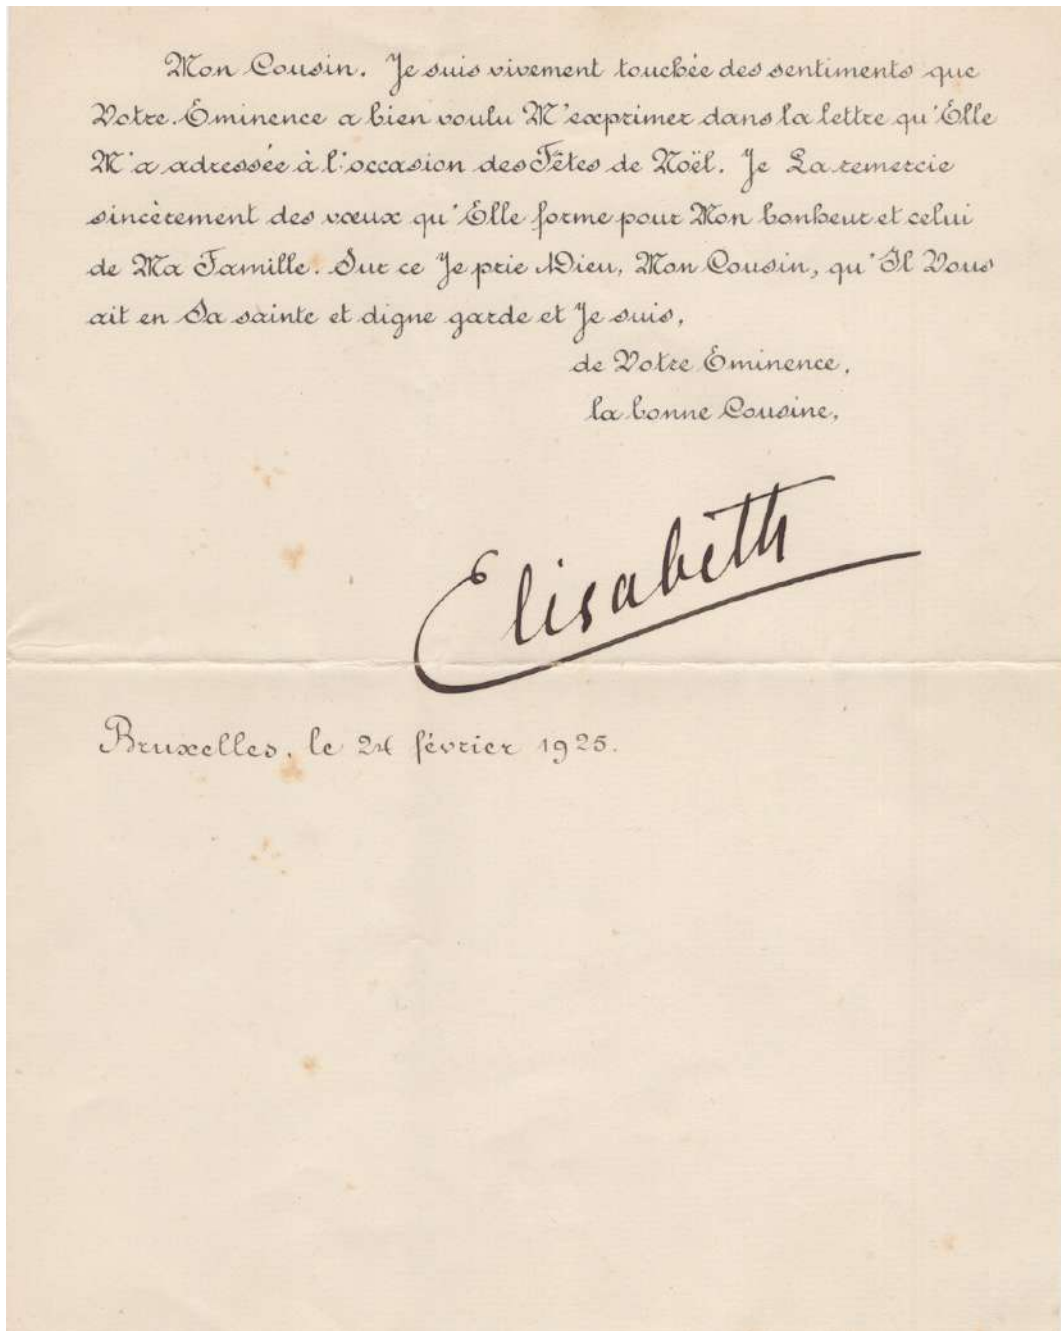 Mon Cousin. Je suis vivement touchée des sentiments que
Votre Éminence a bien voulu M'exprimer dans la lettre qu'Elle
M'a adressée à l'occasion des Fêtes de Noël. Je La remercie
sincèrement des vœux qu'Elle forme pour Mon bonheur et celui
de Ma Famille. Sur ce Je prie Dieu, Mon Cousin, qu'Il Vous
ait en Sa sainte et digne garde et Je suis,
de Votre Éminence,
la bonne Cousine,
Elisabeth
Bruxelles, le 24 février 1925.